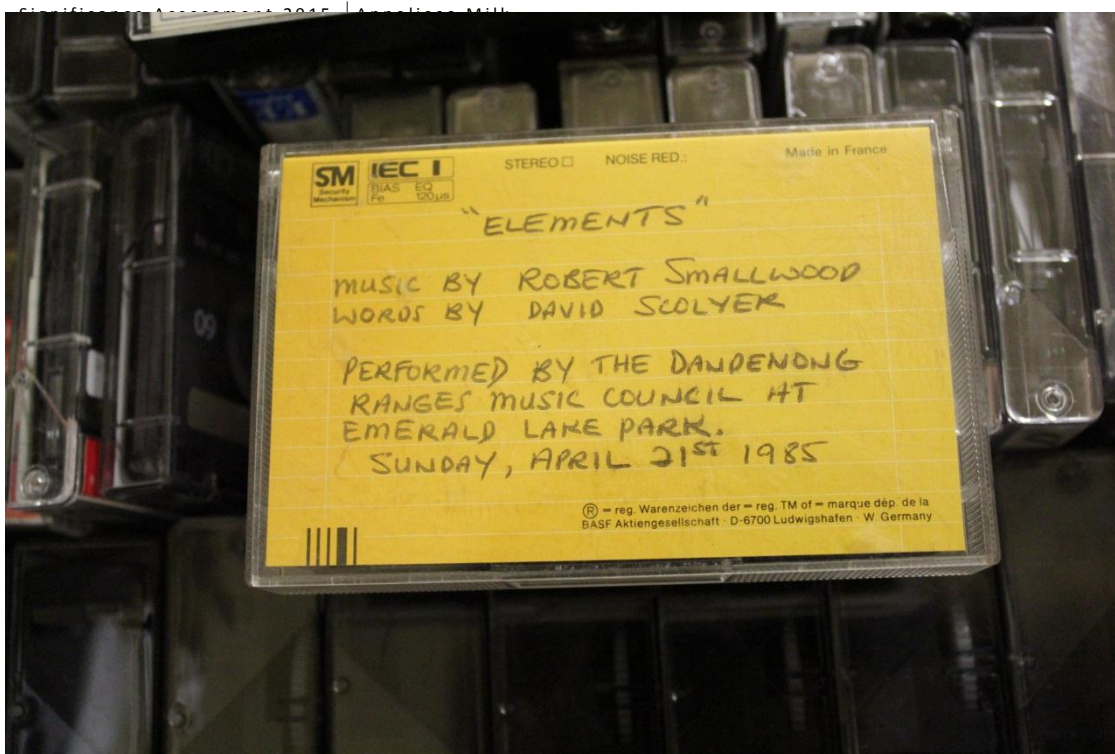 Significance Assessment 2015 | Anneliese Milk
SM
Security
Mechanism
IEC I
BIAS EQ
Fe 120µs
STEREO □ NOISE RED.:
Made in France
"ELEMENTS"
MUSIC BY ROBERT SMALLWOOD
WORDS BY DAVID SCOLYER
PERFORMED BY THE DANDENONG
RANGES MUSIC COUNCIL AT
EMERALD LAKE PARK.
SUNDAY, APRIL 21ST 1985
® = reg. Warenzeichen der = reg. TM of = marque dép. de la
BASF Aktiengesellschaft · D-6700 Ludwigshafen · W. Germany